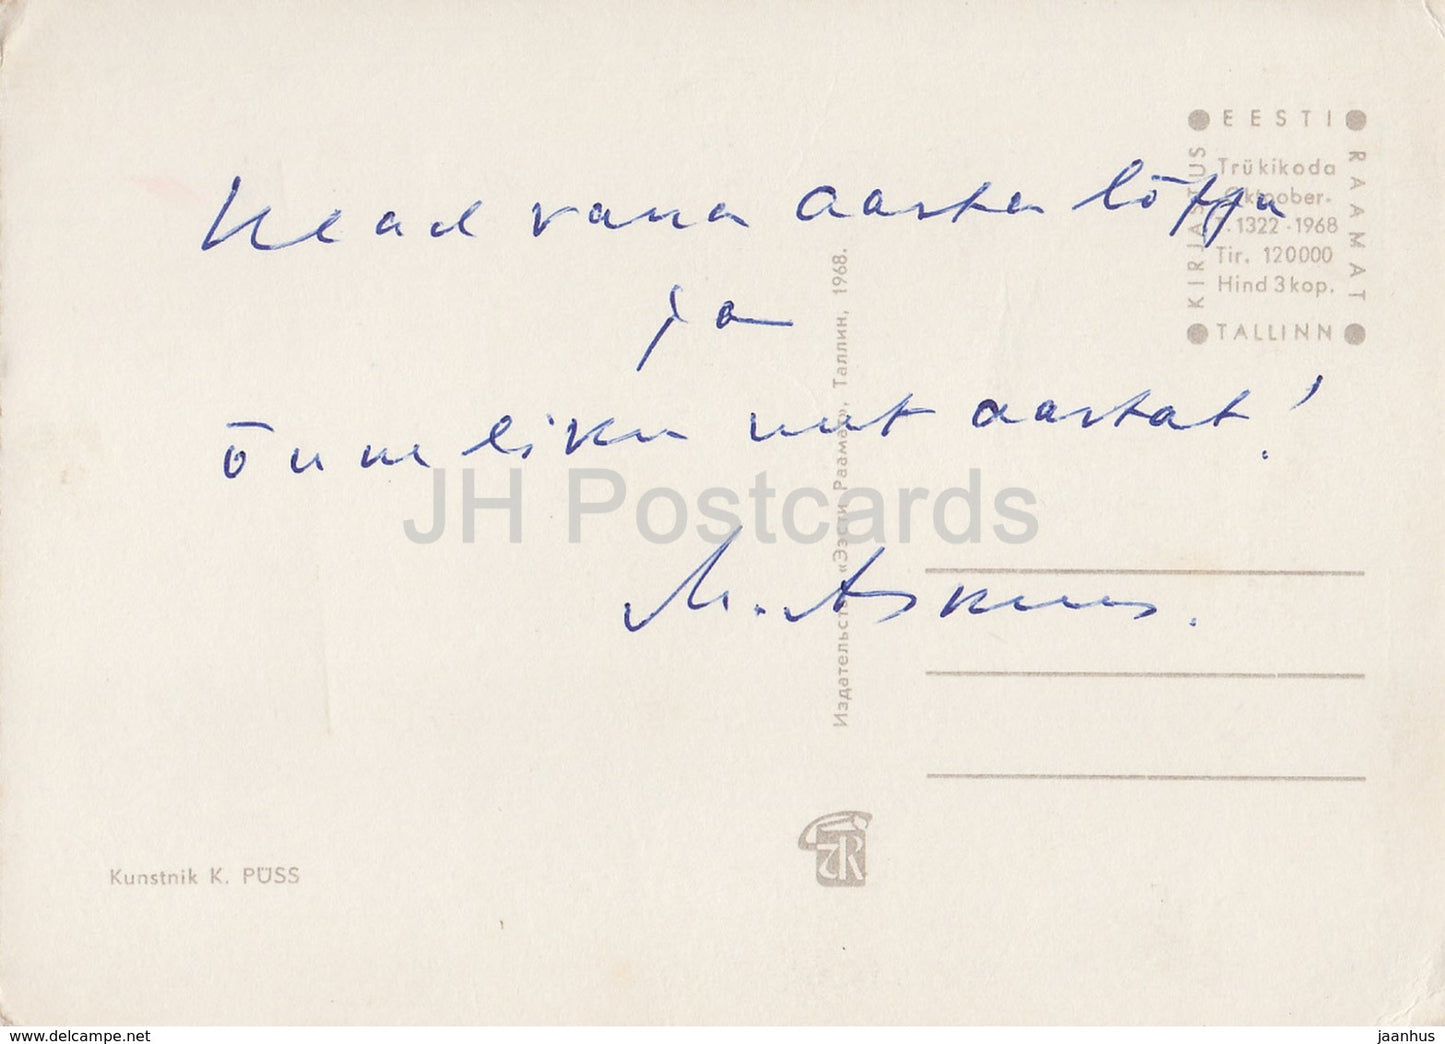 EESTI
RAAMAT
KIRJASTUS
TALLINN
Trükikoda
Oktoober.
T. 1322 · 1968
Tir. 120000
Hind 3 kop.
Head vana aasta lõppu
ja
õnnelikku uut aastat!
Издательство «Ээсти Раамат», Таллин, 1968.
JH Postcards
Kunstnik K. PÜSS
www.delcampe.net
jaanhus